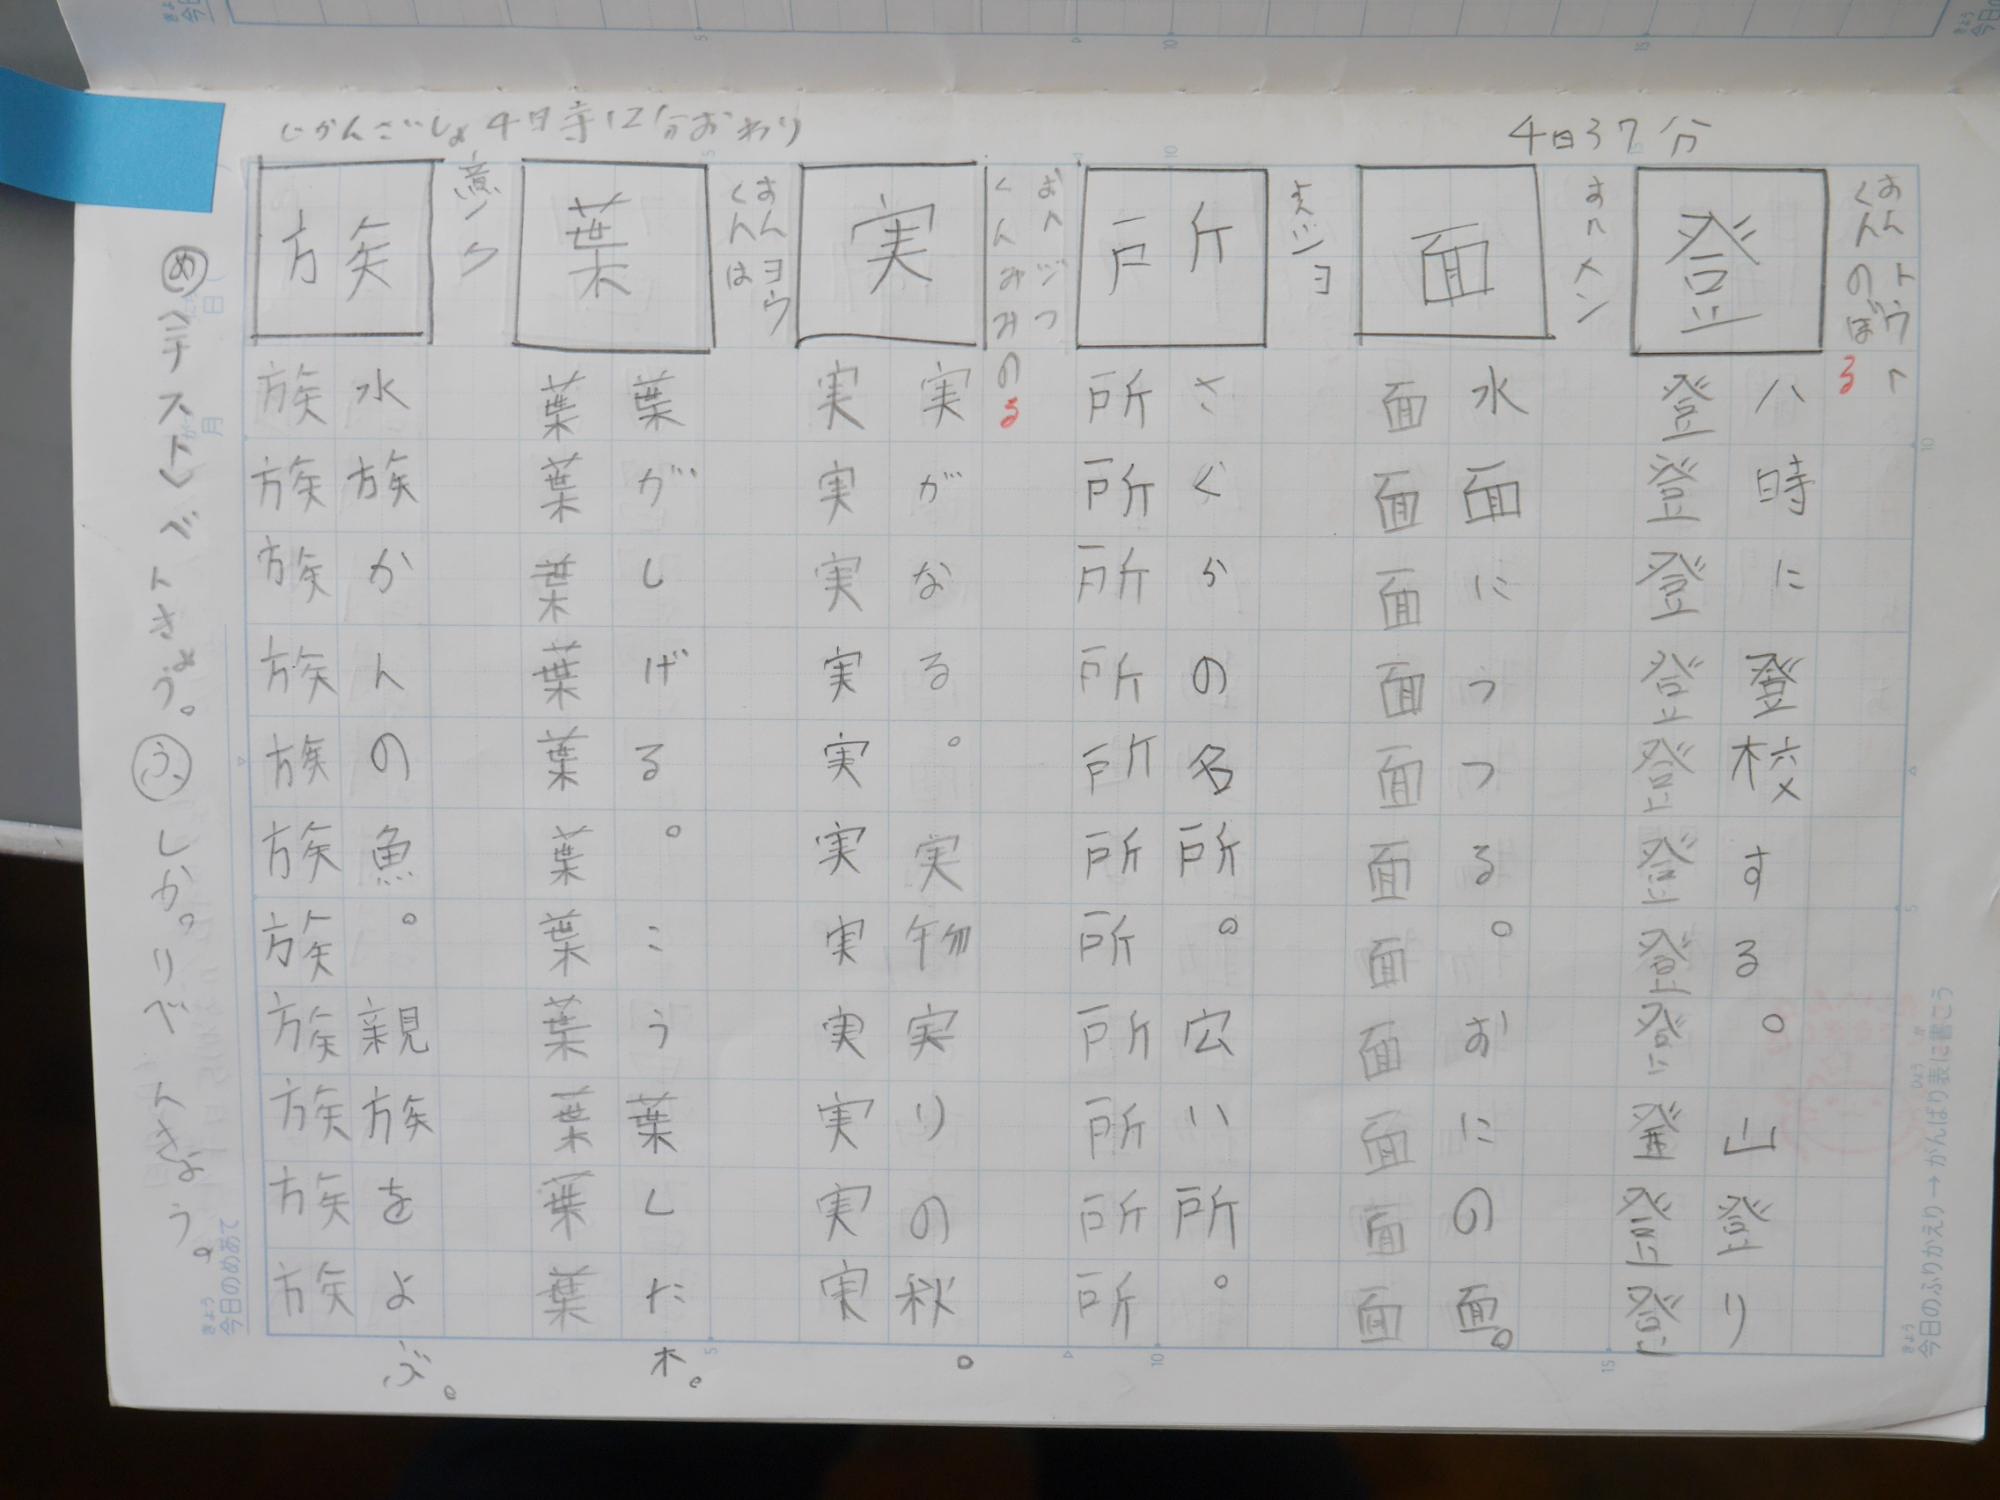 4日37分
じかんごしょ4日寺12分おわり
おん トウ ト
くん のぼる
登
八時に登校する。山登り
登登登登登登登登登登登
おんメン
面
水面にうつる。おにの面。
面面面面面面面面面面面
おんショ
所
さくらの名所。広い所。
所所所所所所所所所所所
おん ジツ
くん み みのる
実
実がなる。実物実りの秋。
実実実実実実実実実実実
おん ヨウ
くん は
葉
葉がしげる。こう葉した木。
葉葉葉葉葉葉葉葉葉葉葉
族
水族かんの魚。親族をよぶ。
族族族族族族族族族族族
め テストべんきょう。 ふ しっかりべんきょう。
今日のめあて
今日のふりかえり→がんばり表に書こう
月
日
5
10
15